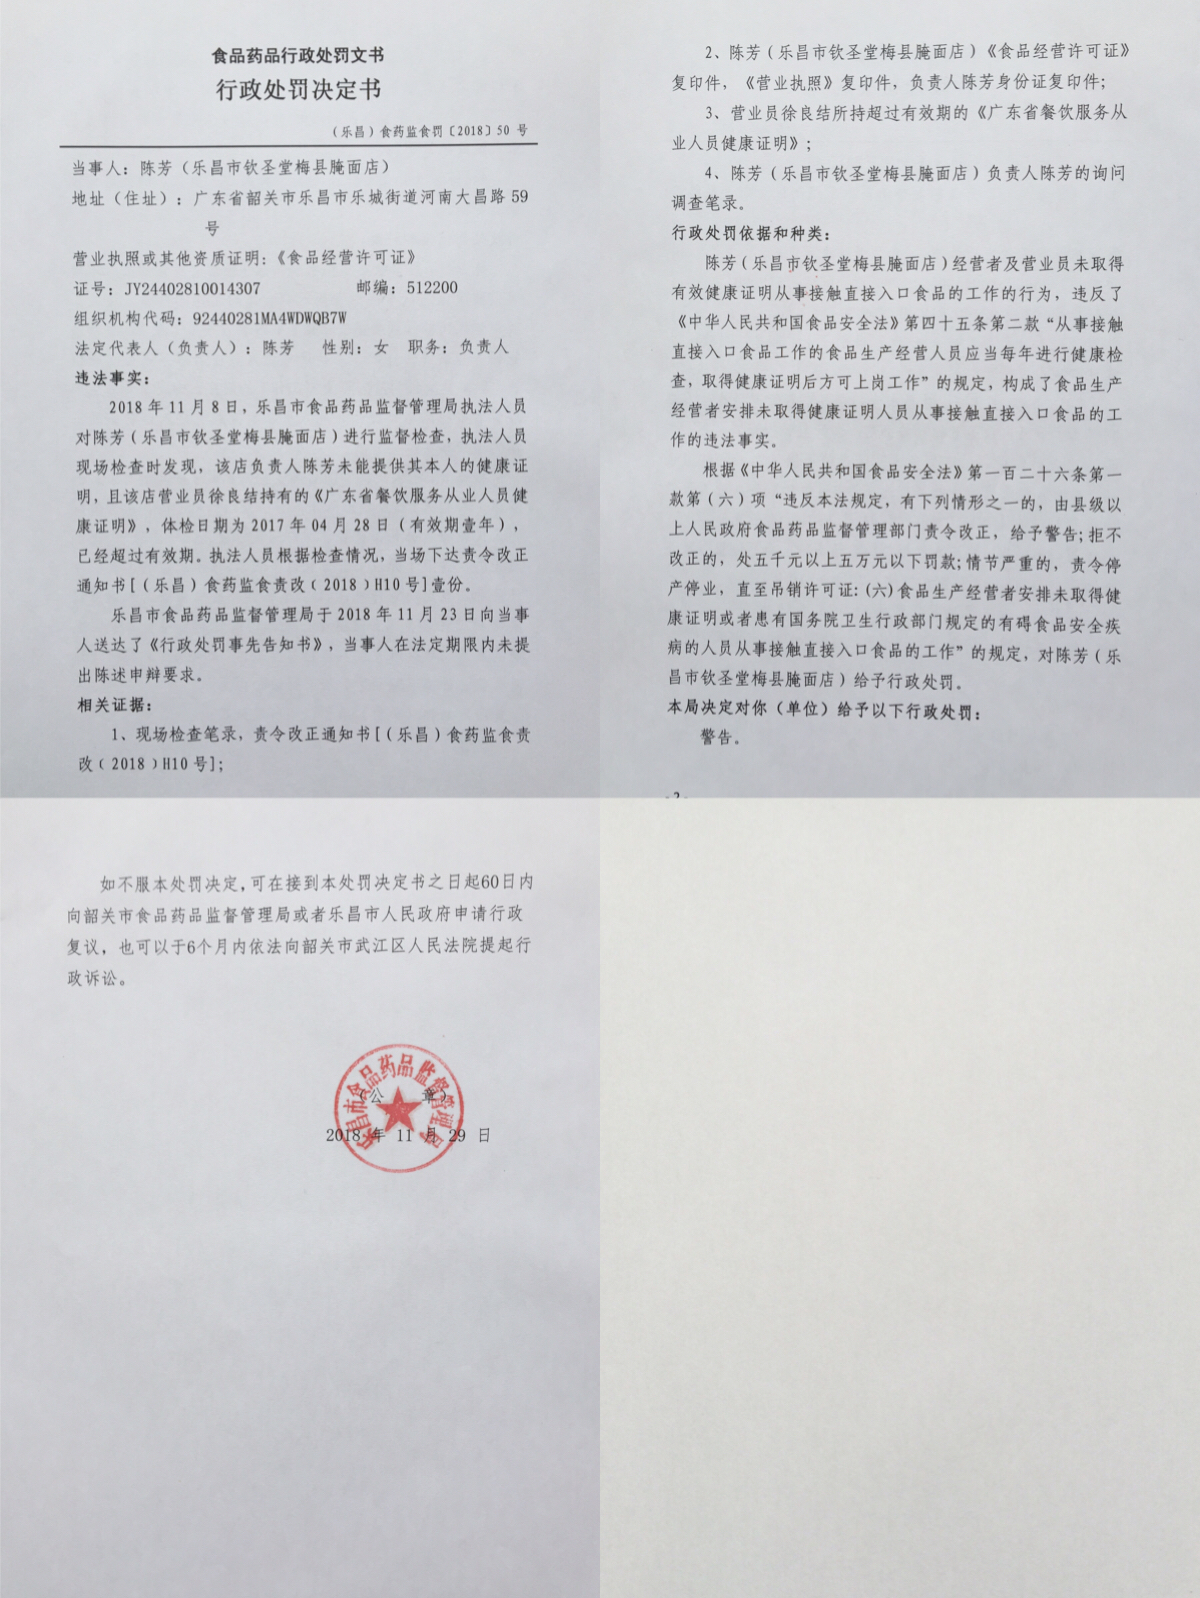 食品药品行政处罚文书
行政处罚决定书
（乐昌）食药监食罚〔2018〕50 号
当事人：陈芳（乐昌市钦圣堂梅县腌面店）
地址（住址）：广东省韶关市乐昌市乐城街道河南大昌路 59
号
营业执照或其他资质证明：《食品经营许可证》
证号：JY24402810014307 邮编：512200
组织机构代码：92440281MA4WDWQB7W
法定代表人（负责人）：陈芳 性别：女 职务：负责人
违法事实：
2018 年 11 月 8 日，乐昌市食品药品监督管理局执法人员
对陈芳（乐昌市钦圣堂梅县腌面店）进行监督检查，执法人员
现场检查时发现，该店负责人陈芳未能提供其本人的健康证
明，且该店营业员徐良结持有的《广东省餐饮服务从业人员健
康证明》，体检日期为 2017 年 04 月 28 日（有效期壹年），
已经超过有效期。执法人员根据检查情况，当场下达责令改正
通知书[（乐昌）食药监食责改﹙2018﹚H10 号]壹份。
乐昌市食品药品监督管理局于 2018 年 11 月 23 日向当事
人送达了《行政处罚事先告知书》，当事人在法定期限内未提
出陈述申辩要求。
相关证据：
1、现场检查笔录，责令改正通知书[（乐昌）食药监食责
改﹙2018﹚H10 号]；
2、陈芳（乐昌市钦圣堂梅县腌面店）《食品经营许可证》
复印件，《营业执照》复印件，负责人陈芳身份证复印件；
3、营业员徐良结所持超过有效期的《广东省餐饮服务从
业人员健康证明》；
4、陈芳（乐昌市钦圣堂梅县腌面店）负责人陈芳的询问
调查笔录。
行政处罚依据和种类：
陈芳（乐昌市钦圣堂梅县腌面店）经营者及营业员未取得
有效健康证明从事接触直接入口食品的工作的行为，违反了
《中华人民共和国食品安全法》第四十五条第二款“从事接触
直接入口食品工作的食品生产经营人员应当每年进行健康检
查，取得健康证明后方可上岗工作”的规定，构成了食品生产
经营者安排未取得健康证明人员从事接触直接入口食品的工
作的违法事实。
根据《中华人民共和国食品安全法》第一百二十六条第一
款第（六）项“违反本法规定，有下列情形之一的，由县级以
上人民政府食品药品监督管理部门责令改正，给予警告；拒不
改正的，处五千元以上五万元以下罚款；情节严重的，责令停
产停业，直至吊销许可证：(六)食品生产经营者安排未取得健
康证明或者患有国务院卫生行政部门规定的有碍食品安全疾
病的人员从事接触直接入口食品的工作”的规定，对陈芳（乐
昌市钦圣堂梅县腌面店）给予行政处罚。
本局决定对你（单位）给予以下行政处罚：
警告。
- 2 -
如不服本处罚决定，可在接到本处罚决定书之日起60日内
向韶关市食品药品监督管理局或者乐昌市人民政府申请行政
复议，也可以于6个月内依法向韶关市武江区人民法院提起行
政诉讼。
乐昌市食品药品监督管理局
（公 章）
2018 年 11 月 29 日